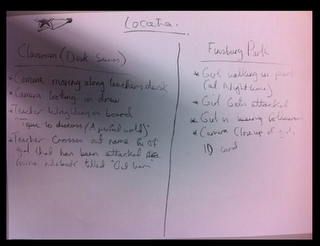 Location.
Classroom (Dark Scenes)
* Camera moving along teachers desk
* Camera looking in draw
* Teacher Writing on board
Topic to discuss (A perfect world)
* Teacher Crosses out name of
girl that has been attacked
name
Finsbury Park
* Girl walking in park
(at Night time)
* Girl Gets attacked
* Girl is being followed
* Camera Close up of girls
ID card